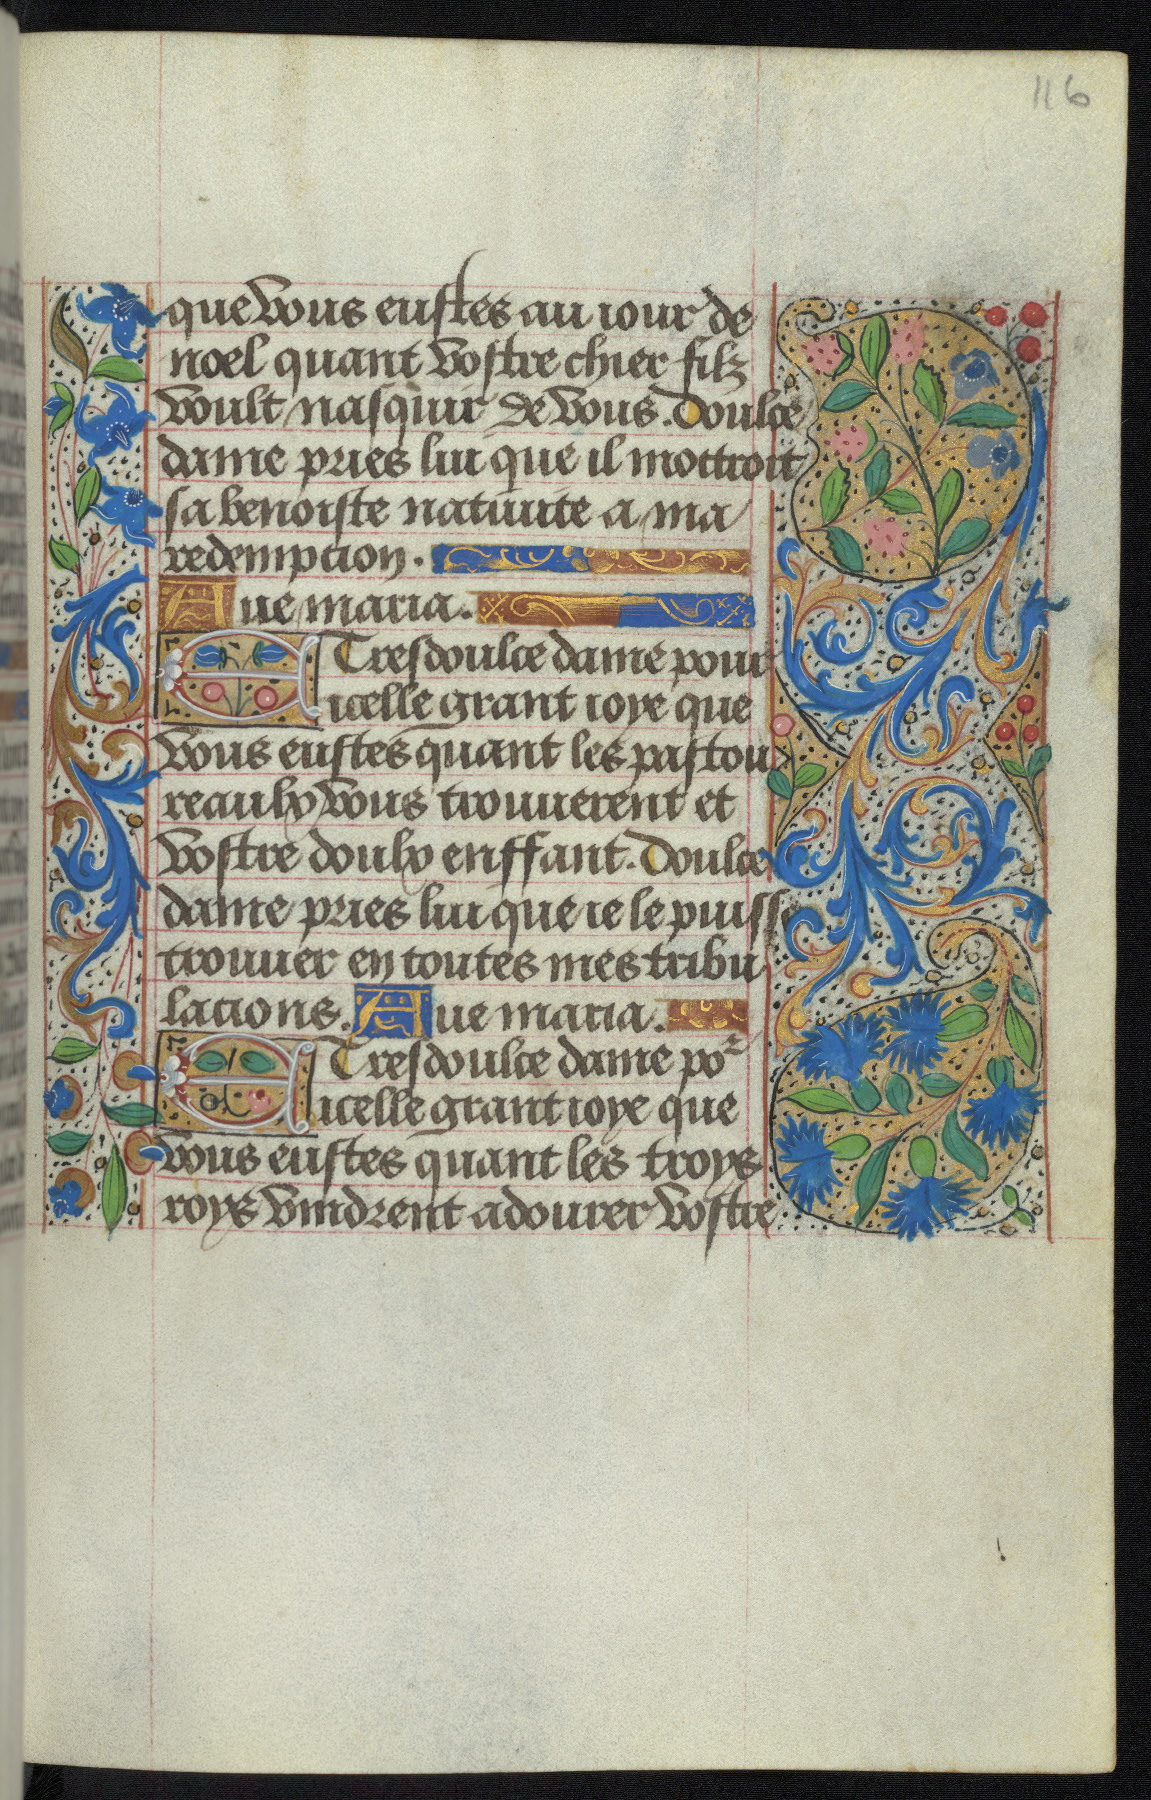 116
que vous eustes au iour de
noel quant vostre chier filz
voult nasquir de vous. Doulce
dame pries lui que il mottroit
sa benoiste natiuite a ma
redempcion.
Aue maria.
E Tresdoulce dame pour
icelle grant ioye que
vous eustes quant les pastou
reaulx vous trouuerent et
vostre doulx enffant. Doulce
dame pries lui que ie le puisse
trouuer en toutes mes tribu
lacions. Aue maria.
E Tresdoulce dame por
icelle grant ioye que
vous eustes quant les troys
roys vindrent adourer vostre